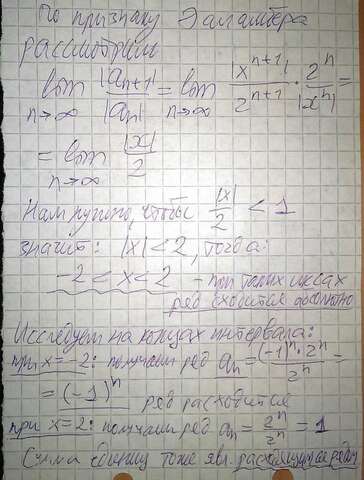 По признаку Даламбера
рассмотрим
lim |a_{n+1}|/|a_n| = lim |x^{n+1}|/2^{n+1} · 2^n/|x^n| =
n→∞ n→∞
= lim |x|/2
n→∞
Нам нужно, чтобы |x|/2 < 1
значит: |x|<2, тогда:
-2 < x < 2 - при таких иксах
ряд сходится абсолютно
Исследуем на концах интервала:
при x=-2: получаем ряд a_n = (-1)^n · 2^n/2^n =
= (-1)^n ряд расходится
при x=2: получаем ряд a_n = 2^n/2^n = 1
Сумма единиц тоже явл. расходящ рядом